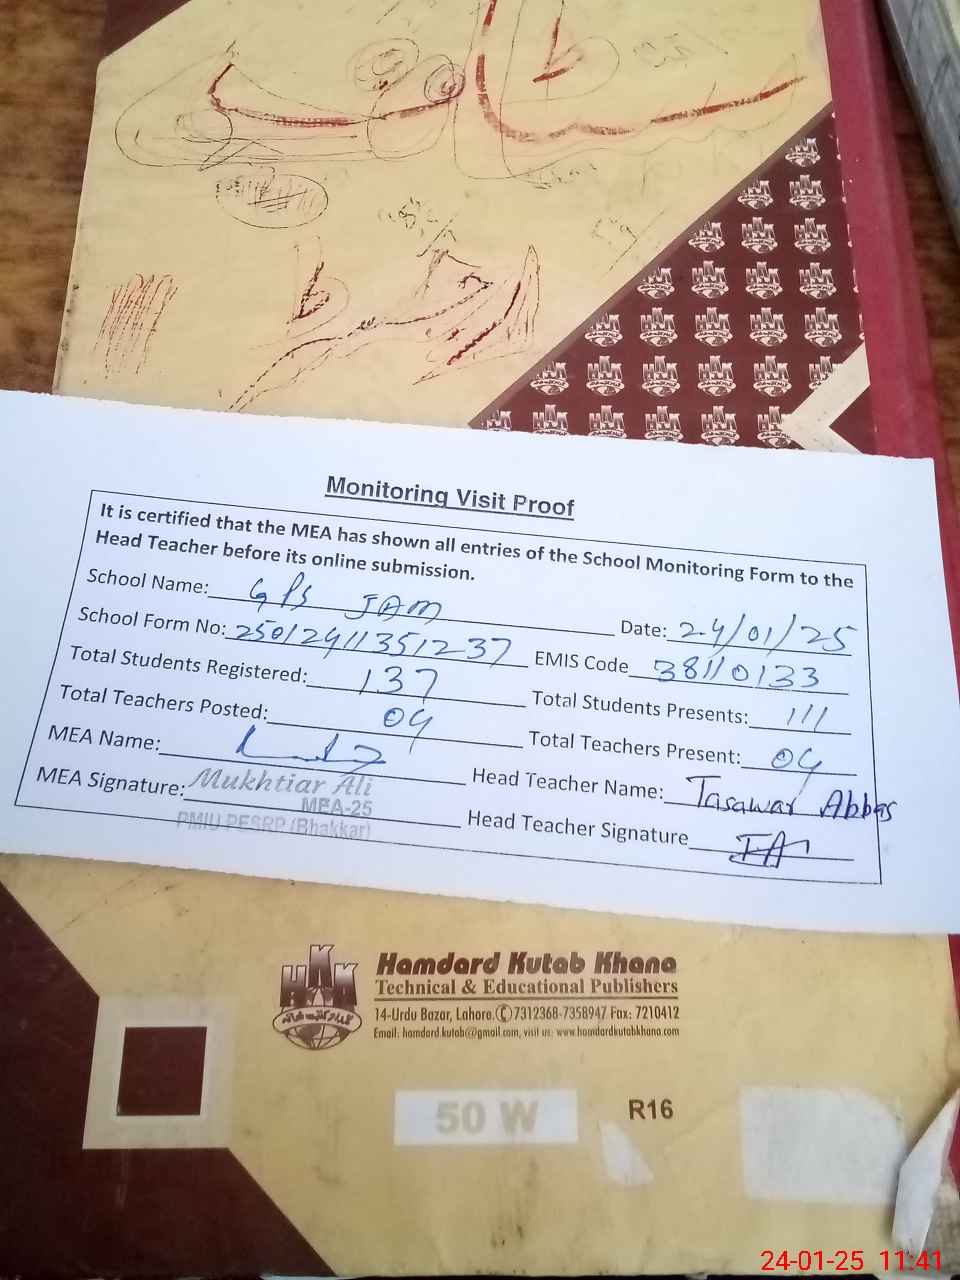 Monitoring Visit Proof
It is certified that the MEA has shown all entries of the School Monitoring Form to the
Head Teacher before its online submission.
School Name: GPS JAM Date: 24/01/25
School Form No: 25012411351237 EMIS Code 38110133
Total Students Registered: 137 Total Students Presents: 111
Total Teachers Posted: 04 Total Teachers Present: 04
MEA Name: Head Teacher Name: Tasawar Abbas
MEA Signature: Mukhtiar Ali Head Teacher Signature
MEA-25
PMIU PESRP (Bhakkar)
HKK
Hamdard Kutab Khana
Technical & Educational Publishers
14-Urdu Bazar, Lahore. 7312368-7358947 Fax: 7210412
Email: hamdard.kutab@gmail.com, visit us: www.hamdardkutabkhana.com
50 W R16
24-01-25 11:41